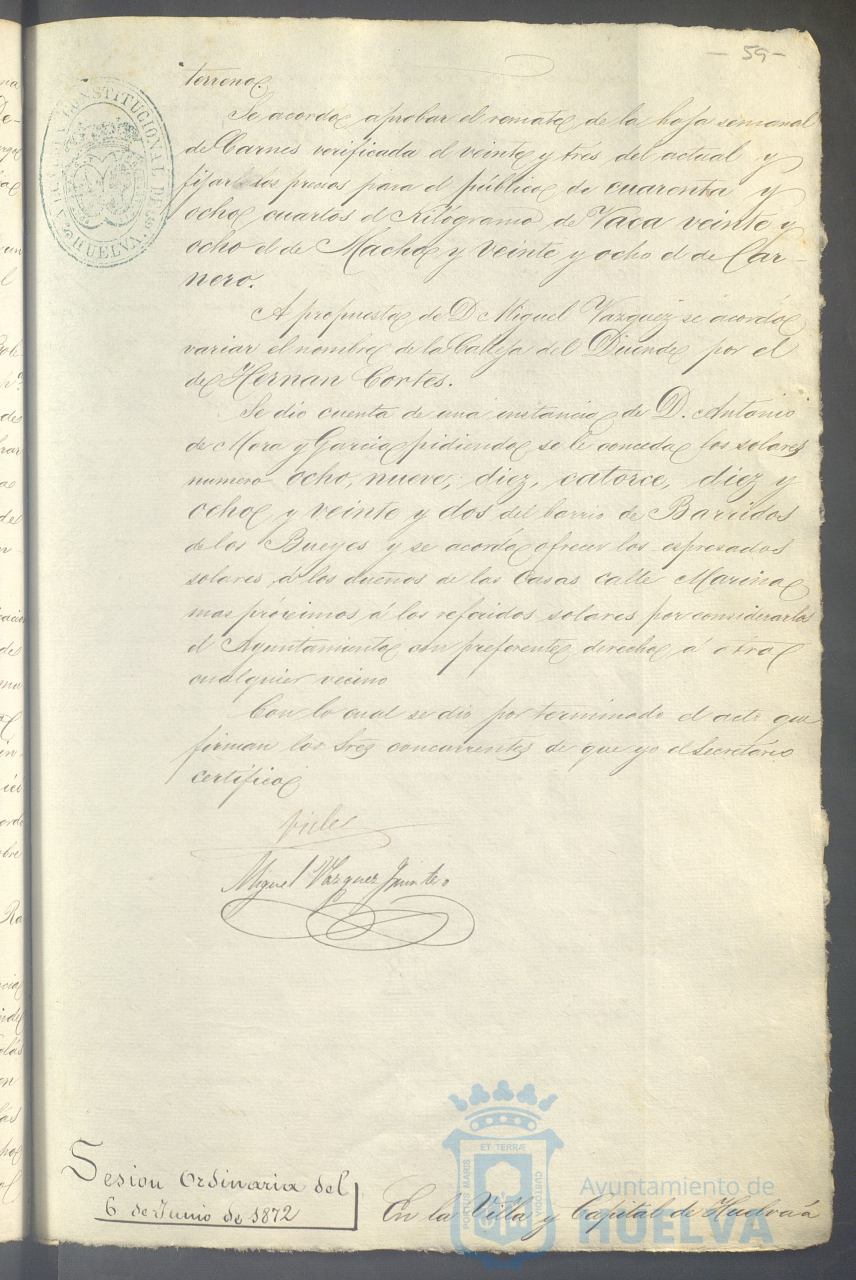 - 59 -
terreno.
Se acordó aprobar el remate de la baja semanal
de Carnes verificada el veinte y trés del actual y
fijar los precios para el público de cuarenta y
ocho cuartos el Kilógramo de Vaca veinte y
ocho el de Macho y veinte y ocho el de Car-
nero.
A propuesta de D Miguel Vazquez se acordó
variar el nombre de la Calleja del Duende por el
de Hernan Cortes.
Se dio cuenta de una instancia de D. Antonio
de Mora y Garcia pidiendo se le conceda los solares
numero ocho, nueve, diez, catorce, diez y
ocho y veinte y dos del barrio de Barridos
de los Bueyes y se acordó ofrecer los espresados
solares á los dueños de las Casas calle Marina
mas próximos á los referidos solares por considerarlos
el Ayuntamiento con preferente derecho á otro
cualquier vecino
Con lo cual se dio por terminado el acto que
firman los Sres concurrentes de que yo el Secretario
certifico
Miguel Vazquez
Sesion Ordinaria del
6 de Junio de 1872
En la Villa y Capital de Huelva á
CONSTITUCIONAL DE
HUELVA
PORTUS MARIS
ET TERRÆ
CUSTODIA
Ayuntamiento de
HUELVA